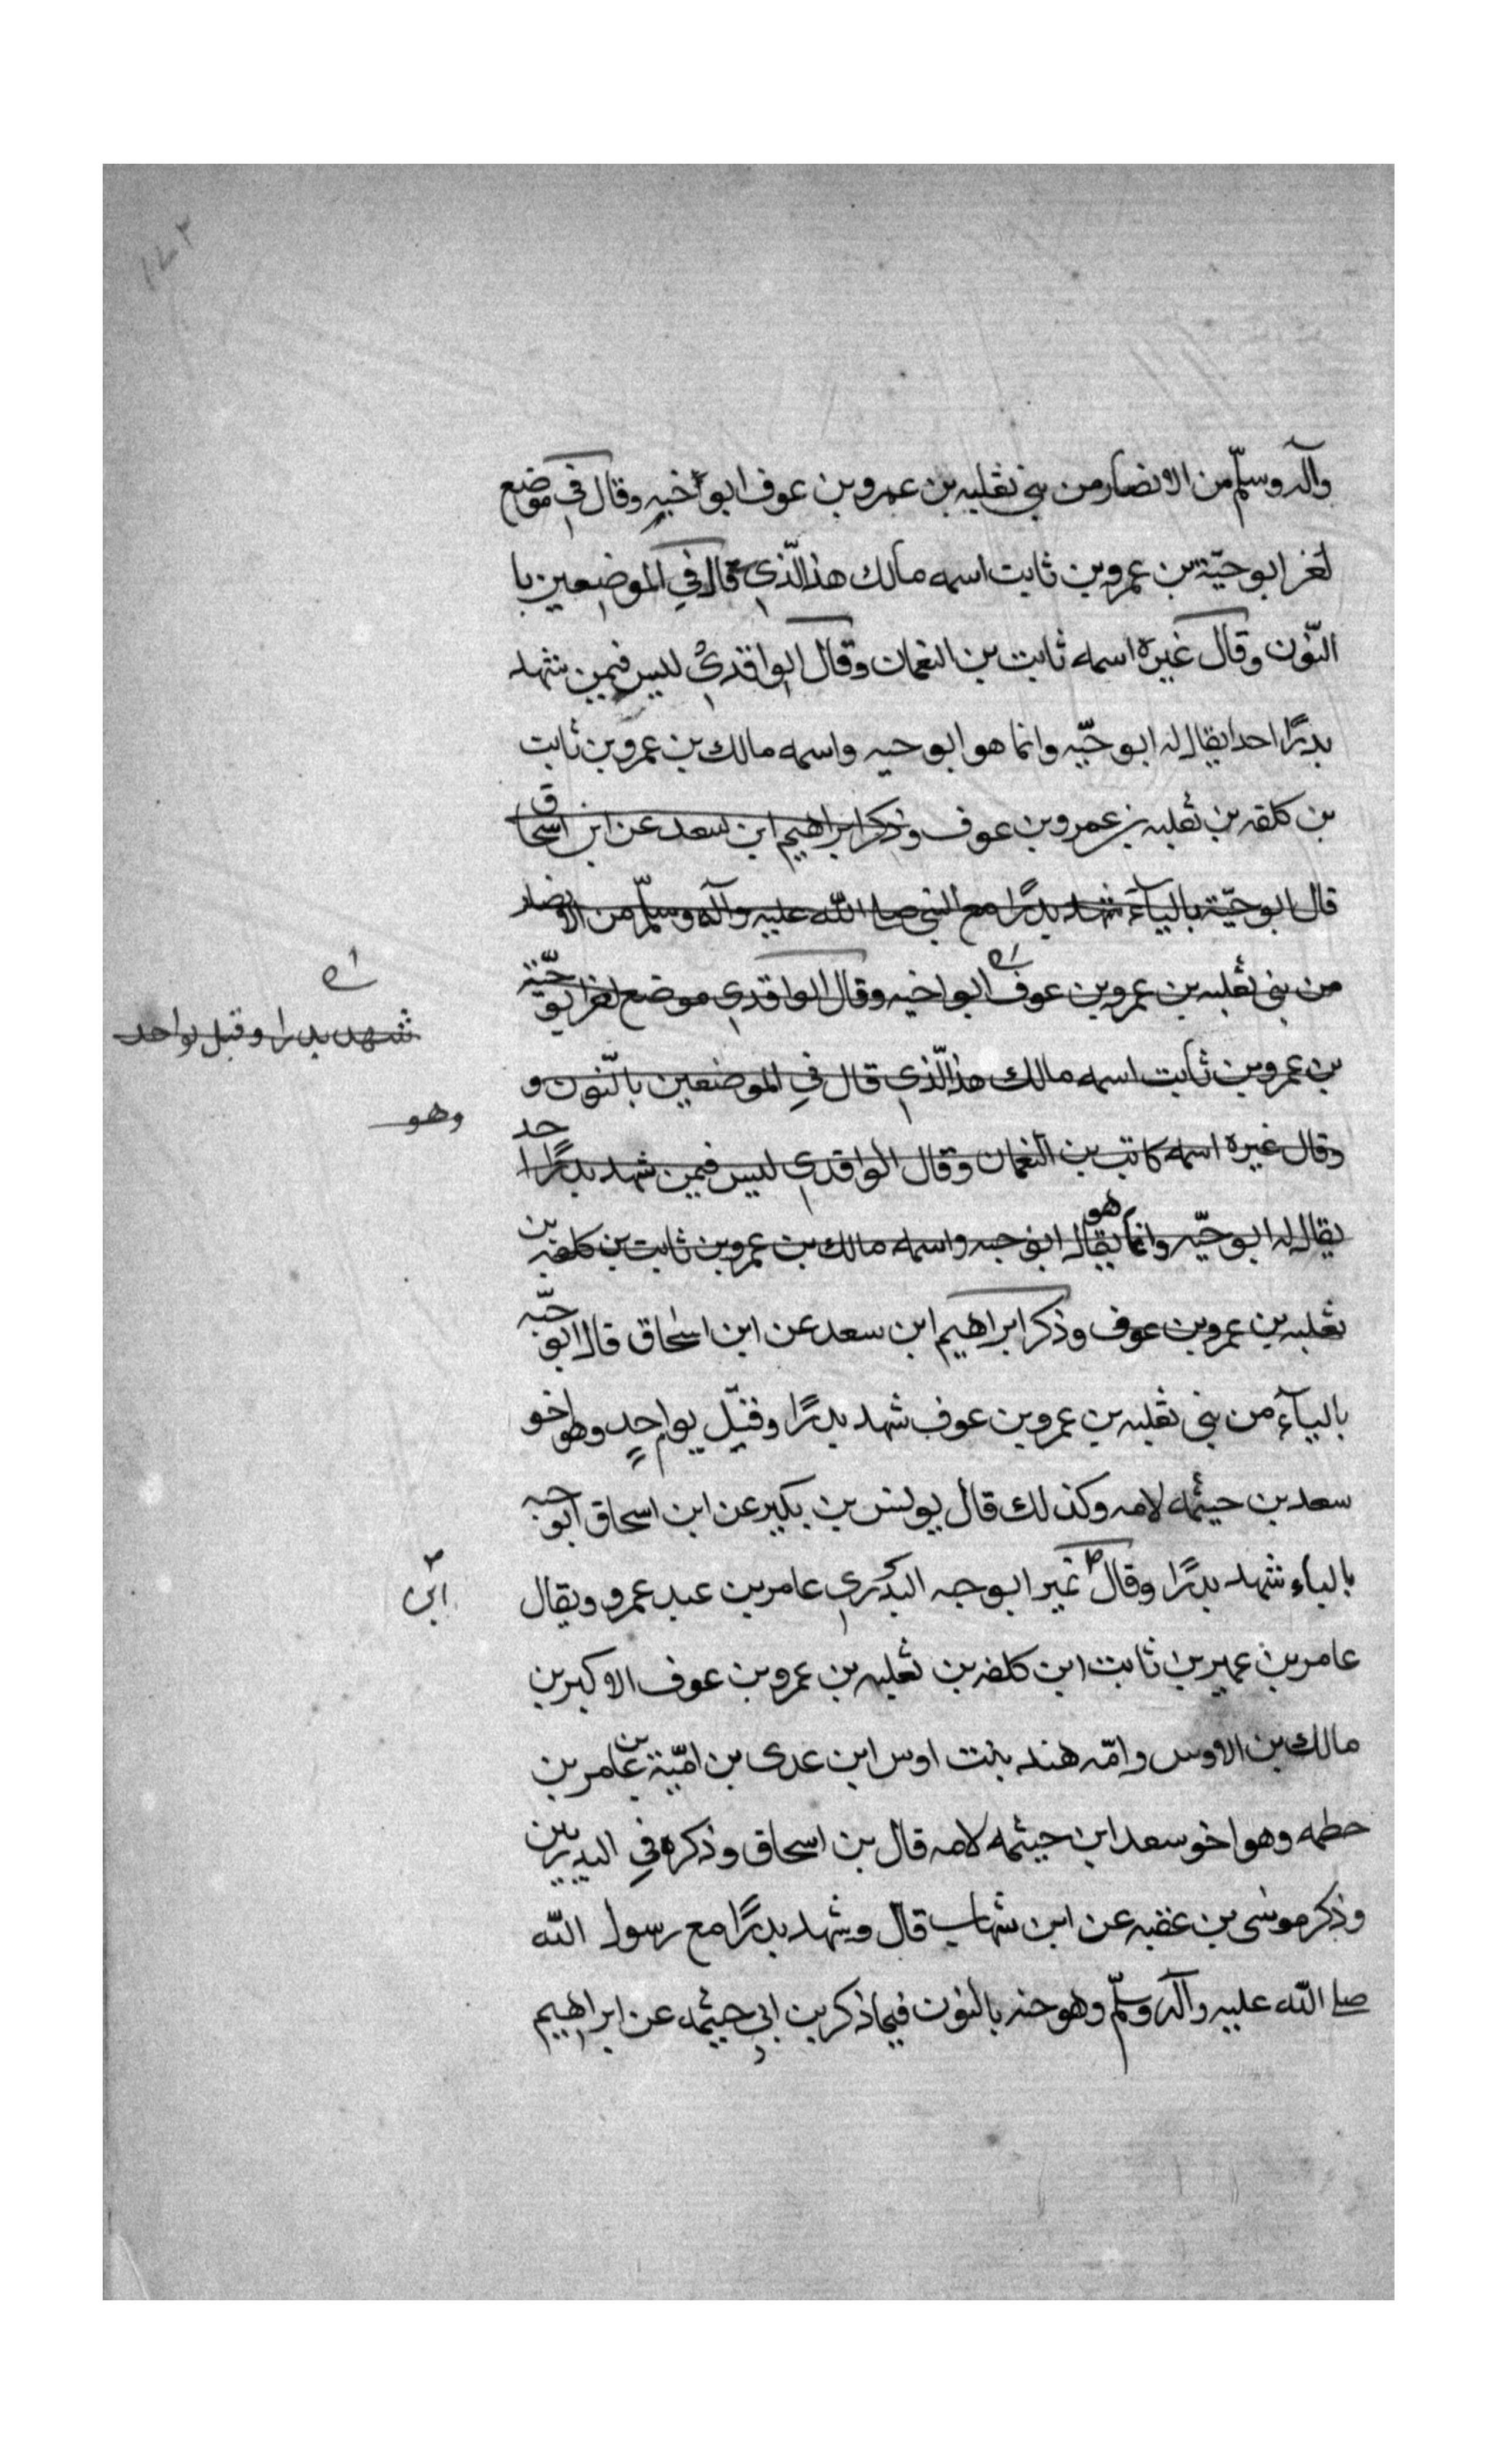 ١٧٢
وآله وسلّم من الانصار من بني ثعلبه بن عمرو بن عوف ابو خيه وقال في موضع
لغر ابو حيّة بن عمرو بن ثابت اسمه مالك هذا الّذي قال في الموضعين با
النّون وقال غيره اسمه ثابت بن النعمان وقال الواقدي ليس فيمن شهد
بدرًا احدا يقال له ابو حيّه وانما هو ابو حبه واسمه مالك بن عمرو بن ثابت
بن كلفه بن ثعلبه بن عمرو بن عوف وذكر ابراهيم ابن سعد عن ابن اسحاق
قال ابو حيّة بالياء شهد بدرًا مع النبي صلى الله عليه وآله وسلّم من الانصار
من بني ثعلبه بن عمرو بن عوف ابو اخيه وقال الواقدي موضع لغر ابو حبّة
شهد بدرا وقتل يوم احد
بن عمرو بن ثابت اسمه مالك هذا الّذي قال في الموضعين بالنّون و
وهو
وقال غيره اسمه كاتب بن النعمان وقال الواقدي ليس فيمن شهد بدرًا احد
يقال له ابو حيّه وانما يقال هو ابو حبه واسمه مالك بن عمرو بن ثابت بن كلفه بن
ثعلبه بن عمرو بن عوف وذكر ابراهيم ابن سعد عن ابن اسحاق قال ابو حبّه
بالباء من بني ثعلبه بن عمرو بن عوف شهد بدرًا وقتل يوم احدٍ وهو اخو
سعد بن حيثمه لامه وكذلك قال يونس بن بكير عن ابن اسحاق ابو حبه
بالباء شهد بدرًا وقال نمير ابو حبه البدري عامر بن عبد عمرو ويقال
ابن
عامر بن عمير بن ثابت ابن كلفه بن ثعلبه بن عمرو بن عوف الاوكبر بن
مالك بن الاوس وامّه هند بنت اوس ابن عدى بن اميّة بن عامر بن
حطمه وهو اخو سعد ابن حيثمه لامه قال بن اسحاق وذكره في البدريين
وذكر موسى بن عقبه عن ابن شهاب قال وشهد بدرًا مع رسول الله
صلى الله عليه وآله وسلّم وهو حنه بالنون فيما ذكر بن ابي حيثمه عن ابراهيم